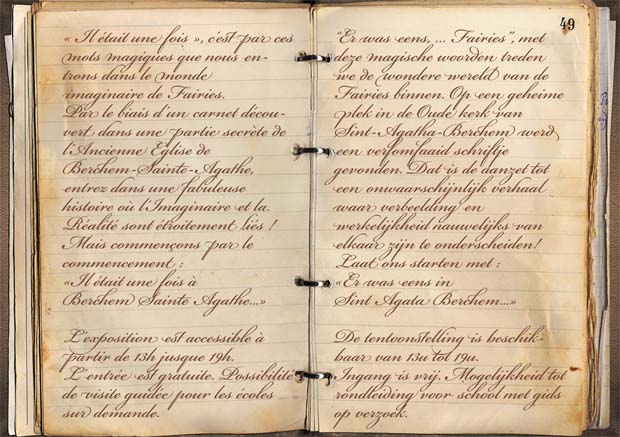 « Il était une fois », c'est par ces
mots magiques que nous en-
trons dans le monde
imaginaire de Fairies.
Par le biais d'un carnet décou-
vert dans une partie secrète de
l'Ancienne Eglise de
Berchem-Sainte-Agathe,
entrez dans une fabuleuse
histoire où l'Imaginaire et la
Réalité sont étroitement liés !
Mais commençons par le
commencement :
«Il était une fois à
Berchem Sainte Agathe...»
L'exposition est accessible à
partir de 13h jusque 19h.
L'entrée est gratuite. Possibilité
de visite guidée pour les écoles
sur demande.
49
"Er was eens, ... Fairies", met
deze magische woorden treden
we de wondere wereld van de
Fairies binnen. Op een geheime
plek in de Oude kerk van
Sint-Agatha-Berchem werd
een verfomfaaid schriftje
gevonden. Dat is de danzet tot
een onwaarschijnlijk verhaal
waar verbeelding en
werkelijkheid nauwelijks van
elkaar zijn te onderscheiden!
Laat ons starten met :
«Er was eens in
Sint Agata Berchem...»
De tentoonstelling is beschik-
baar van 13u tot 19u.
Ingang is vrij. Mogelijkheid tot
rondleiding voor school met gids
op verzoek.